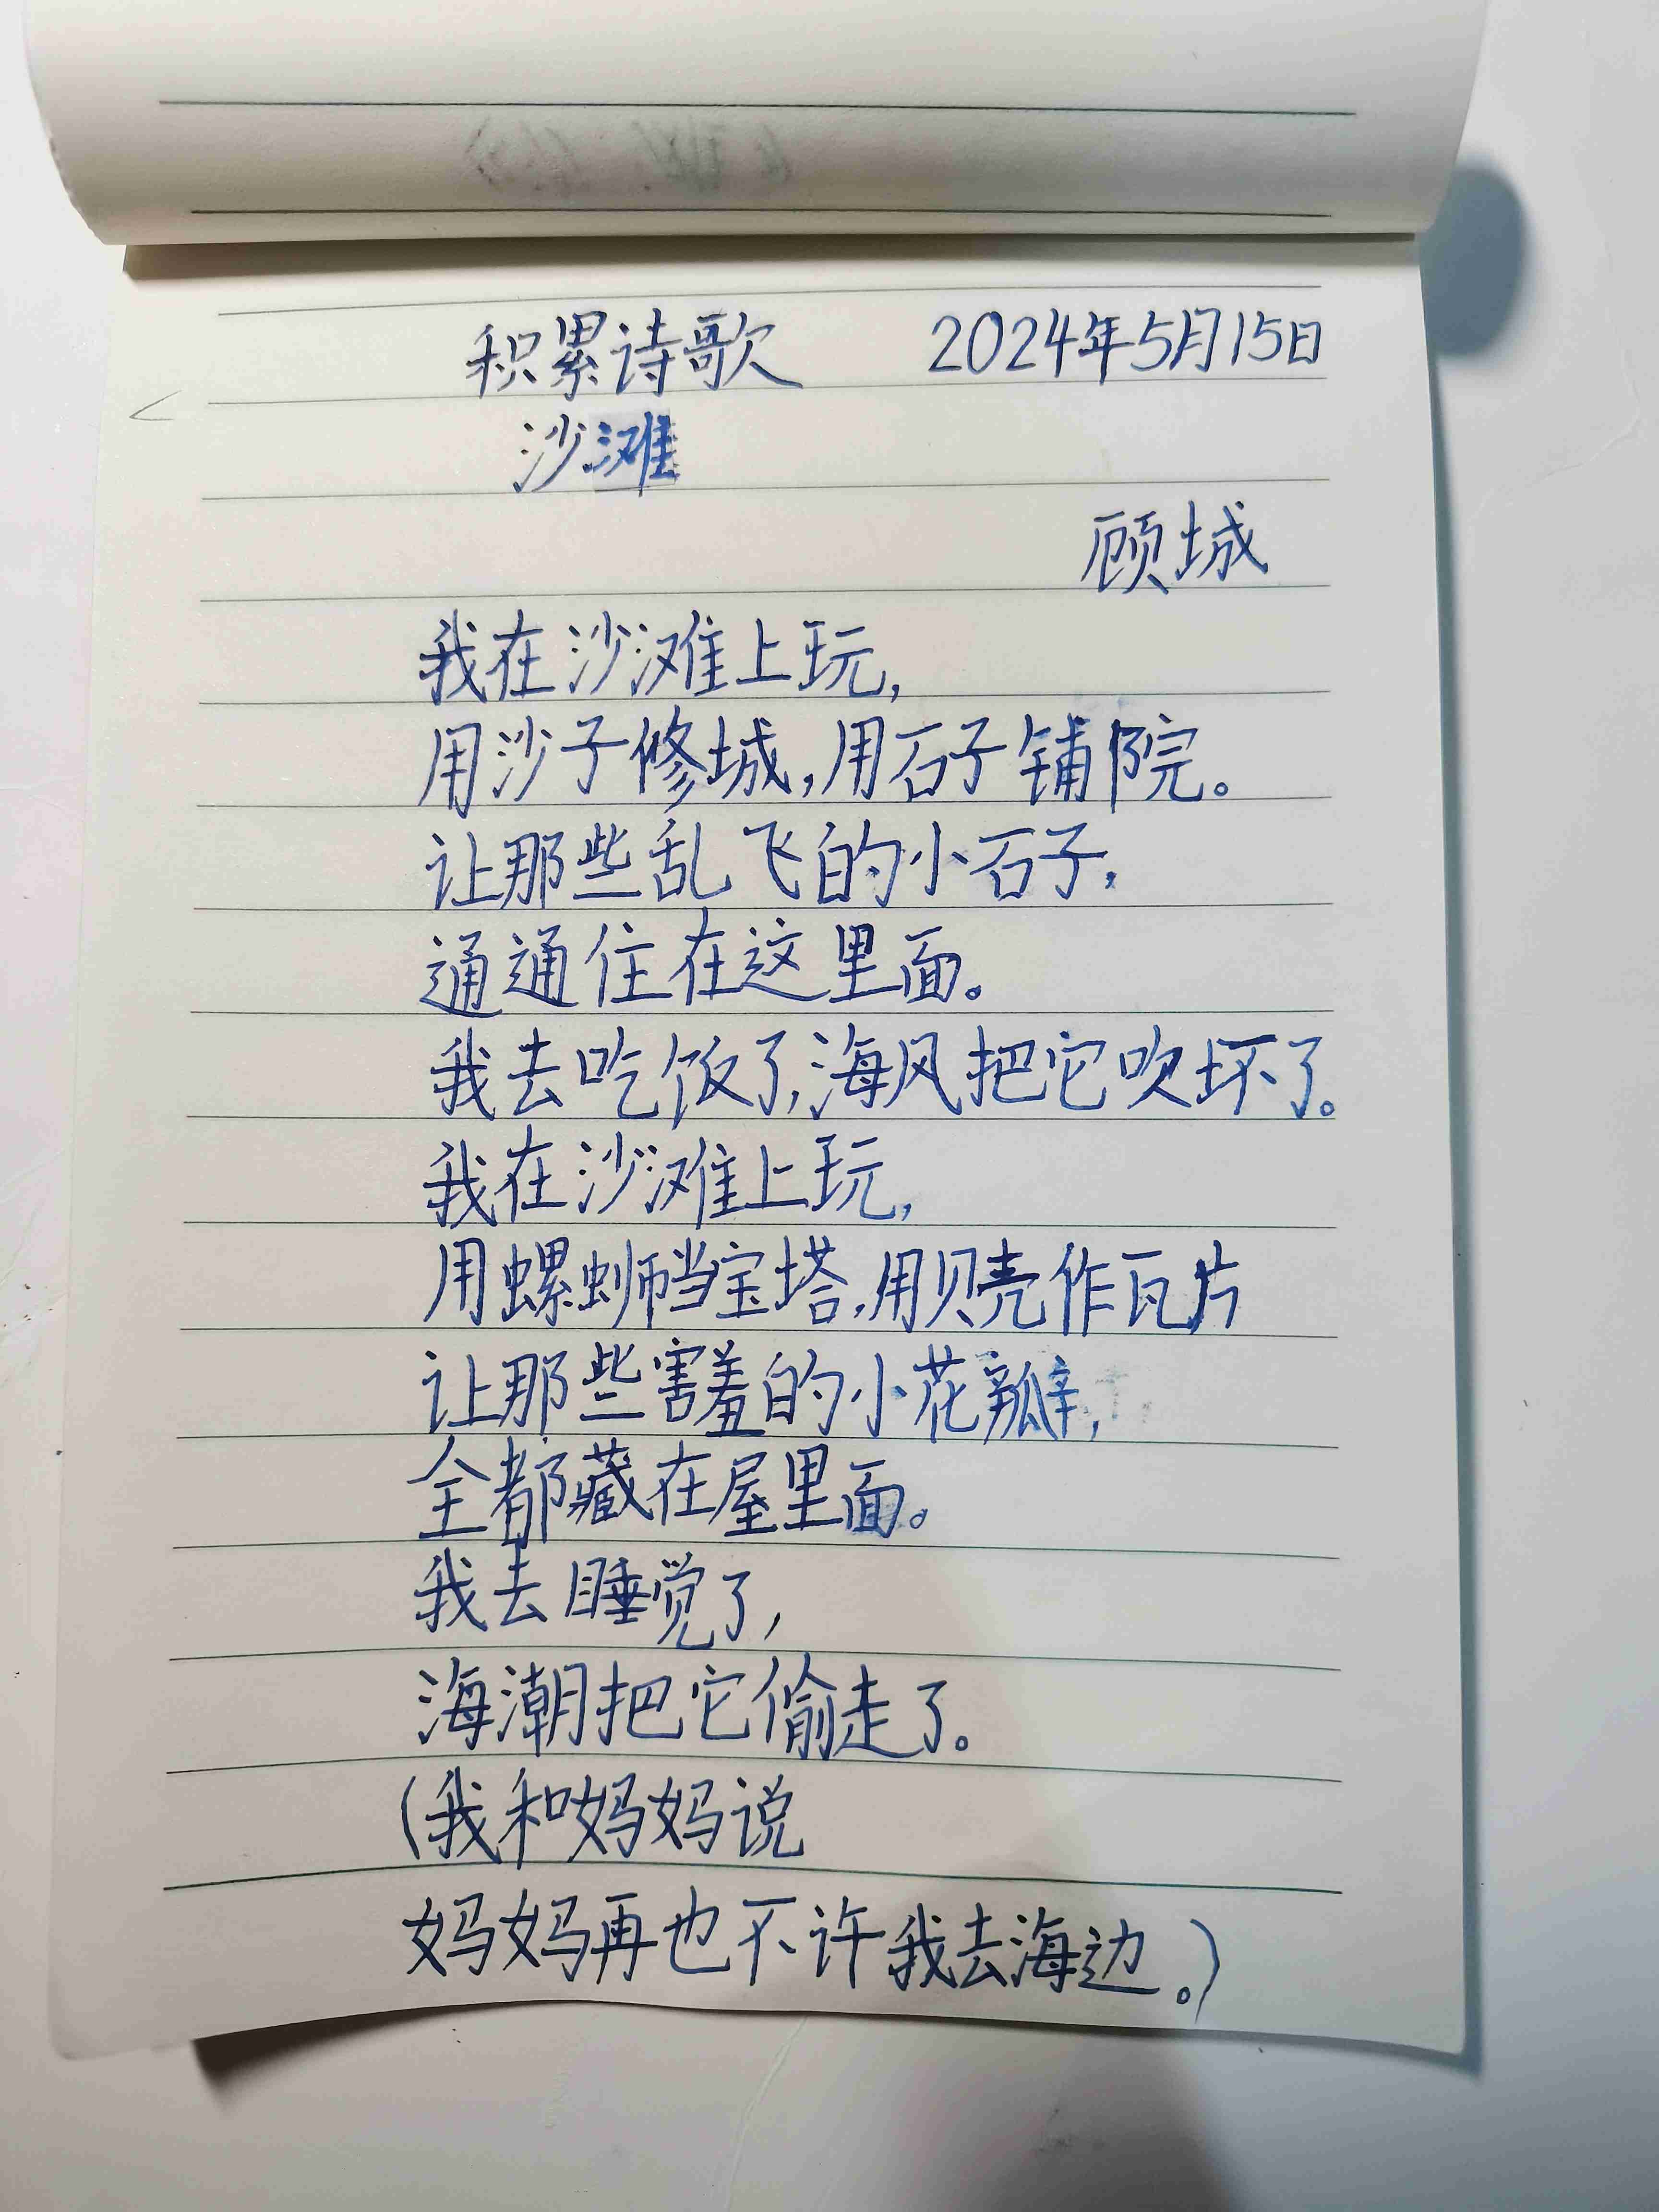 积累诗歌 2024年5月15日
沙滩
顾城
我在沙滩上玩,
用沙子修城,用石子铺院。
让那些乱飞的小石子,
通通住在这里面。
我去吃饭了,海风把它吹坏了。
我在沙滩上玩,
用螺蛳当宝塔,用贝壳作瓦片
让那些害羞的小花瓣,
全都藏在屋里面。
我去睡觉了,
海潮把它偷走了。
(我和妈妈说
妈妈再也不许我去海边。)